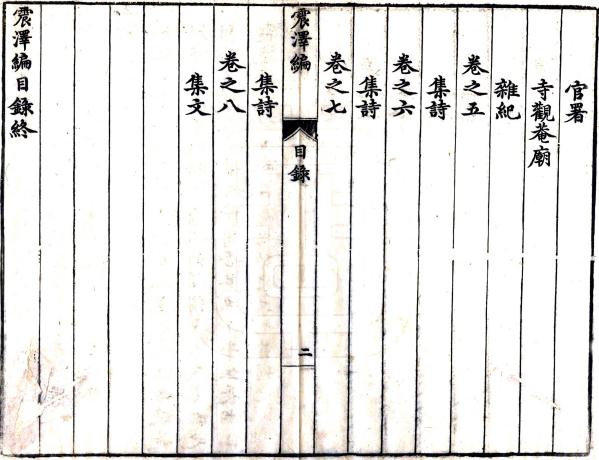 官署
寺觀菴廟
雜紀
卷之五
集詩
卷之六
集詩
卷之七
震澤編 目錄 二
集詩
卷之八
集文
震澤編目錄終